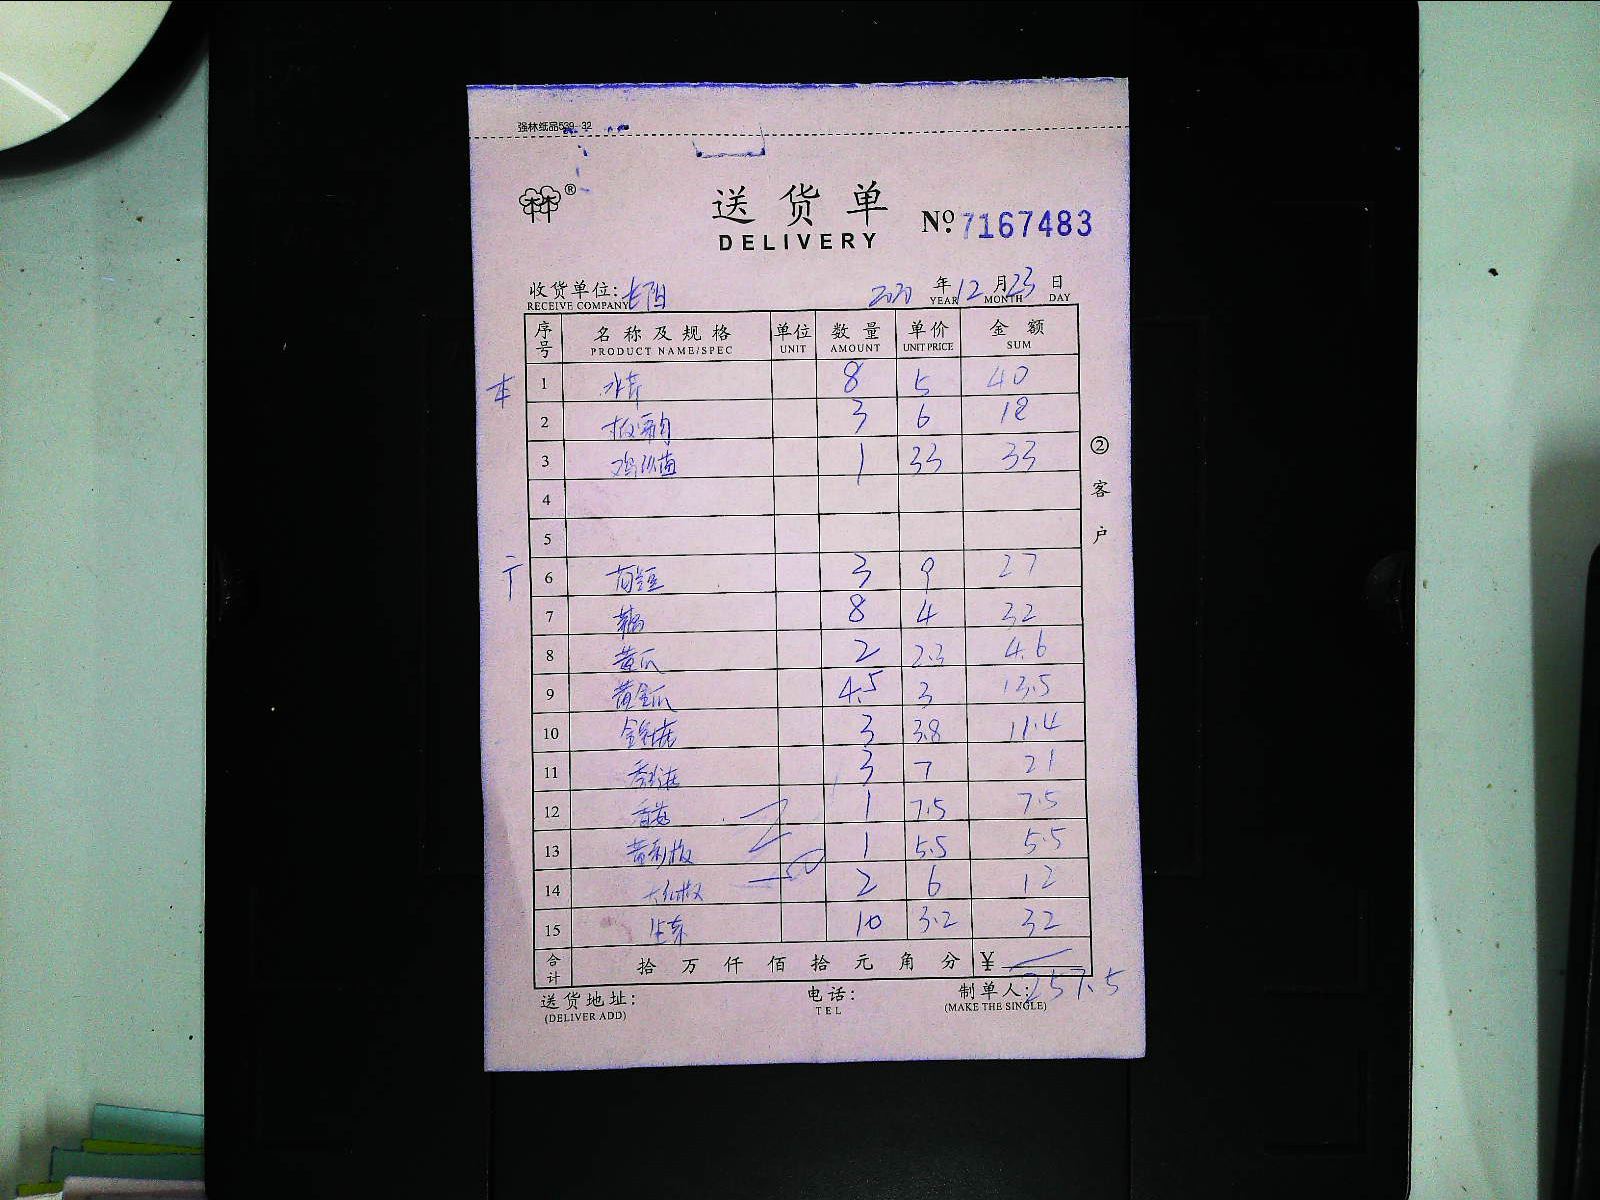 强林纸品539-32
®
送货单
DELIVERY
№: 7167483
收货单位: 2020 年 12 月 23 日
RECEIVE COMPANY YEAR MONTH DAY
序号 名称及规格 单位 数量 单价 金额
PRODUCT NAME/SPEC UNIT AMOUNT UNIT PRICE SUM
本 1 水芹 8 5 40
2 3 6 18
3 鸡 1 33 33
4
5
6 荷短 3 9 27
7 8 4 32
8 黄瓜 2 2.3 4.6
9 黄金瓜 4.5 3 13.5
10 3 3.8 11.4
11 3 7 21
12 香菇 1 7.5 7.5
13 黄彩椒 1 5.5 5.5
14 大红椒 2 6 12
15 生菜 10 3.2 32
合计 拾 万 仟 佰 拾 元 角 分 ¥
257.5
送货地址: 电话: 制单人:
(DELIVER ADD) TEL (MAKE THE SINGLE)
②客户